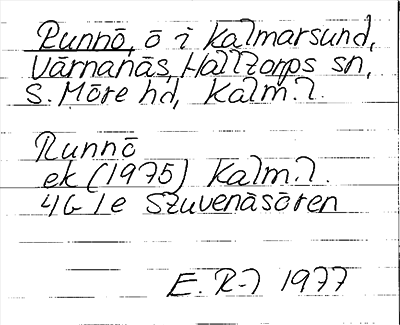 Runnö, ö i Kalmarsund,
Värnanäs, Halltorps sn,
S. Möre hd, Kalm. l.
Runnö
ek (1975) Kalm. l.
4G 1e Stuvenäsören
E. R-l 1977